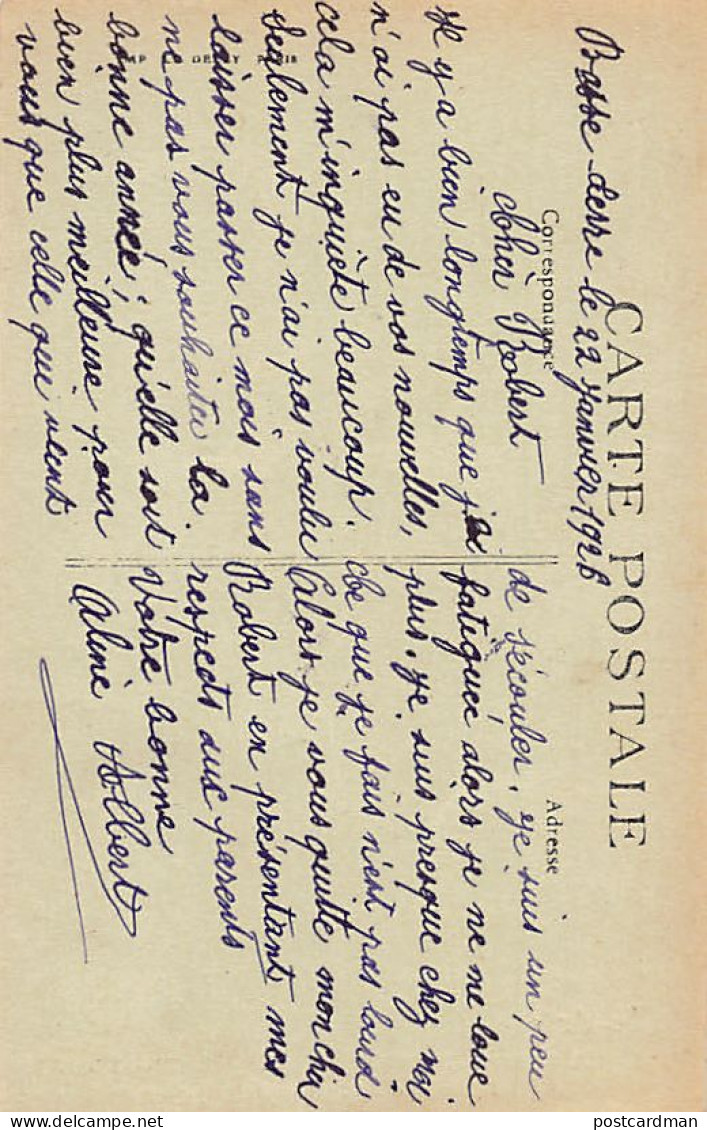 CARTE POSTALE
Basse-terre le 22 janvier 1928
Correspondance
Adresse
Cher Robert
Il y a bien longtemps que j'ai
n'ai pas eu de vos nouvelles,
cela m'inquiète beaucoup.
Seulement je n'ai pas voulu
laisser passer ce mois sans
ne pas vous souhaiter la
bonne année; qu'elle soit
bien plus meilleuse pour
vous que celle qui vient
de s'écouler. je suis un peu
fatiguée alors je ne ne loue
plus. je suis presque chez moi
Ce que je fais n'est pas lourd
Alors je vous quitte mon cher
Robert en présentant mes
respects aux parents
Votre bonne
Aline Albert
IMP PARIS
postcardman